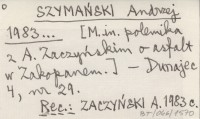 SZYMAŃSKI Andrzej
1983... [M.in. polemika
z A. Zaczyńskim o asfalt
w Zakopanem.] – Dunajec
4, nr 29.
Rec.: ZACZYŃSKI A. 1983 c.